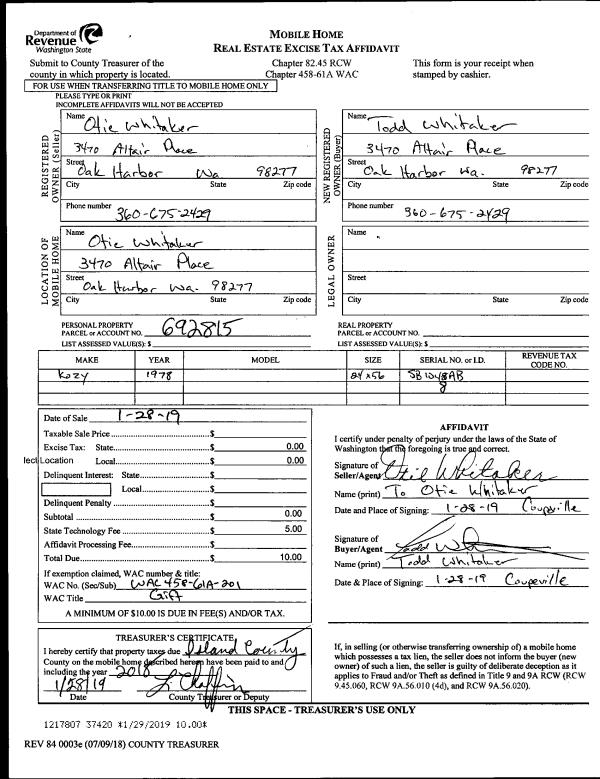 Department of
Revenue
Washington State
MOBILE HOME
REAL ESTATE EXCISE TAX AFFIDAVIT
Submit to County Treasurer of the
county in which property is located.
Chapter 82.45 RCW
Chapter 458-61A WAC
This form is your receipt when
stamped by cashier.
FOR USE WHEN TRANSFERRING TITLE TO MOBILE HOME ONLY
PLEASE TYPE OR PRINT
INCOMPLETE AFFIDAVITS WILL NOT BE ACCEPTED
REGISTERED
OWNER (Seller)
Name Otie Whitaker
3470 Altair Place
Street
Oak Harbor Wa 98277
City State Zip code
Phone number 360-675-2429
NEW REGISTERED
OWNER (Buyer)
Name Todd Whitaker
3470 Altair Place
Street
Oak Harbor Wa. 98277
City State Zip code
Phone number 360-675-2429
LOCATION OF
MOBILE HOME
Name Otie Whitaker
3470 Altair Place
Street
Oak Harbor Wa. 98277
City State Zip code
LEGAL OWNER
Name
Street
City State Zip code
PERSONAL PROPERTY
PARCEL or ACCOUNT NO. 692815
LIST ASSESSED VALUE(S): $
REAL PROPERTY
PARCEL or ACCOUNT NO.
LIST ASSESSED VALUE(S): $
MAKE YEAR MODEL SIZE SERIAL NO. or I.D. REVENUE TAX CODE NO.
Kozy 1978 24x56 SB1048AB
8
Date of Sale 1-28-19
Taxable Sale Price $
Excise Tax: State $ 0.00
lect Location Local $ 0.00
Delinquent Interest: State $
Local $
Delinquent Penalty $
Subtotal $ 0.00
State Technology Fee $ 5.00
Affidavit Processing Fee $
Total Due $ 10.00
If exemption claimed, WAC number & title:
WAC No. (Sec/Sub) WAC 458-61A-201
WAC Title Gift
A MINIMUM OF $10.00 IS DUE IN FEE(S) AND/OR TAX.
AFFIDAVIT
I certify under penalty of perjury under the laws of the State of
Washington that the foregoing is true and correct.
Signature of
Seller/Agent Otie Whitaker
Name (print) To Otie Whitaker
Date and Place of Signing: 1-28-19 Coupeville
Signature of
Buyer/Agent Todd
Name (print) Todd Whitaker
Date & Place of Signing: 1-28-19 Coupeville
TREASURER'S CERTIFICATE
I hereby certify that property taxes due Island County
County on the mobile home described hereon have been paid to and
including the year 2018
1/28/19
Date County Treasurer or Deputy
If, in selling (or otherwise transferring ownership of) a mobile home
which possesses a tax lien, the seller does not inform the buyer (new
owner) of such a lien, the seller is guilty of deliberate deception as it
applies to Fraud and/or Theft as defined in Title 9 and 9A RCW (RCW
9.45.060, RCW 9A.56.010 (4d), and RCW 9A.56.020).
THIS SPACE - TREASURER'S USE ONLY
1217807 37420 *1/29/2019 10.00*
REV 84 0003e (07/09/18) COUNTY TREASURER